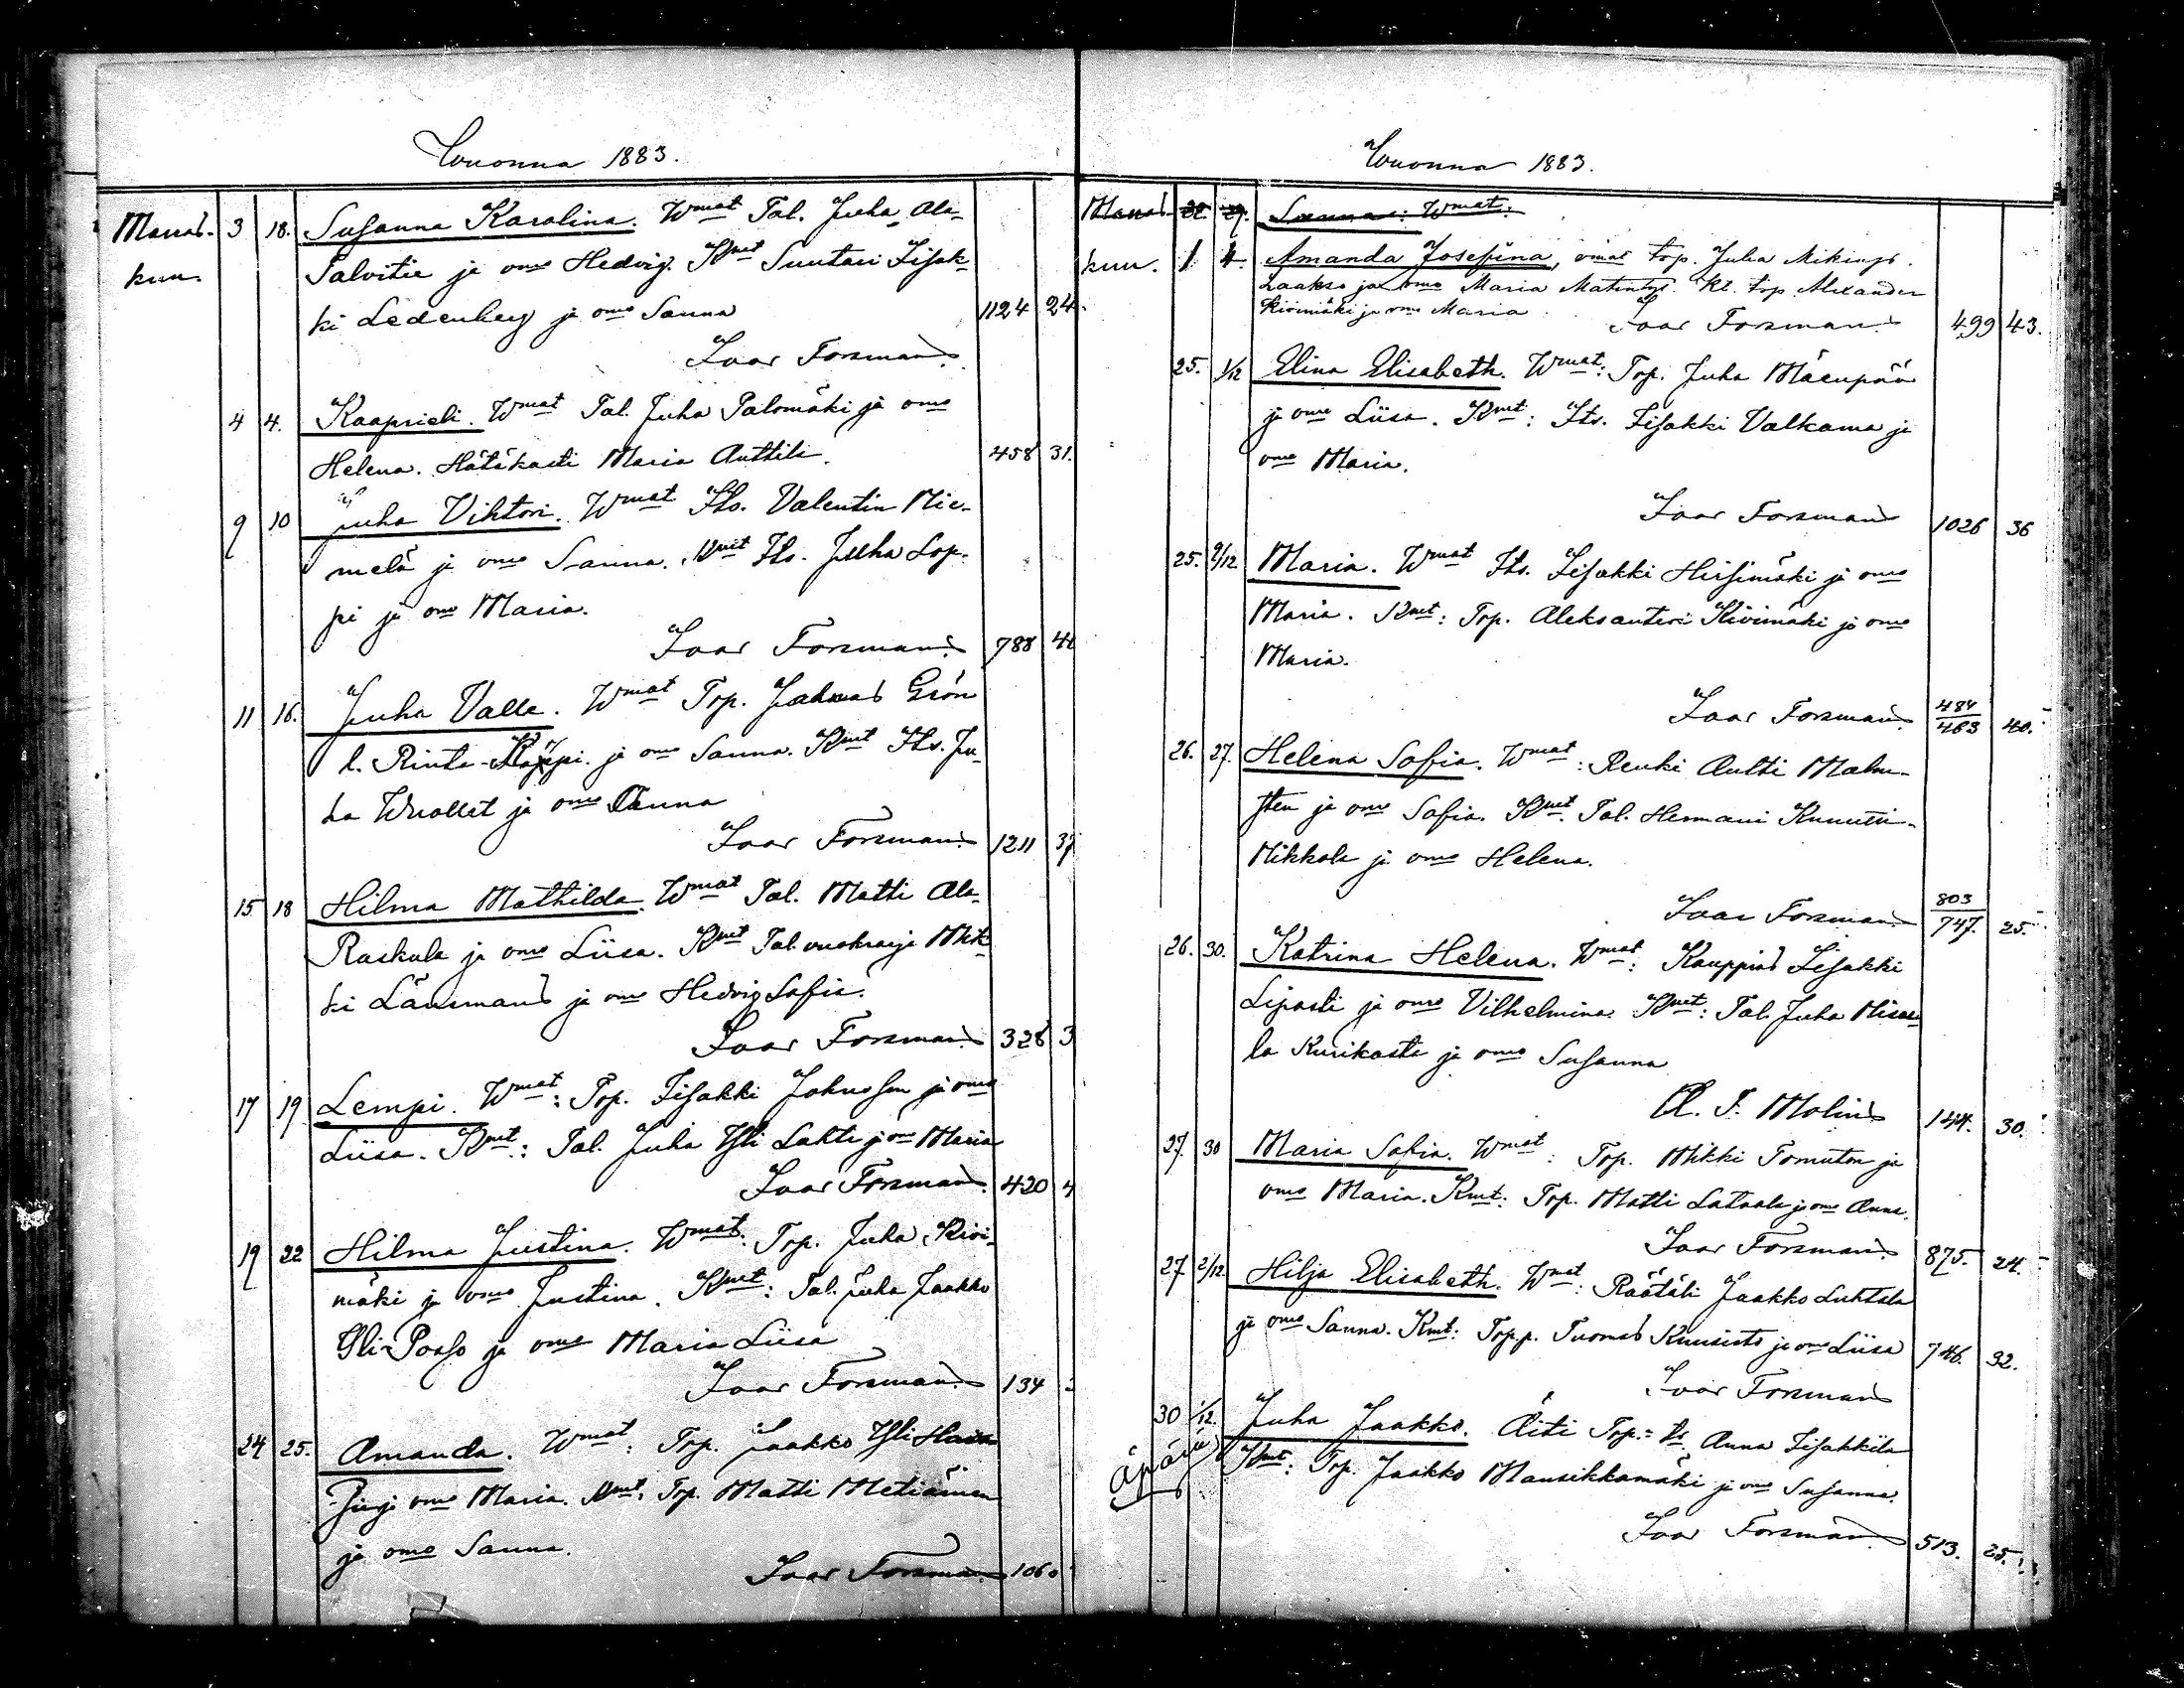 Wuonna 1883.
Marras- 3 18. Susanna Karolina. Wmat Tal. Juha Ala-
kun. Talvitie ja omo Hedvig. Kmt Suutari Iisak-
ki Ledenberg ja omo Sanna 1124 24.
Ivar Forsman.
4 4. Kaaprieli. Wmat Tal. Juha Palomäki ja omo
Helena. Hätäkasti Maria Anttila. 458 31.
9 10 Juha Vihtori. Wmat Its. Valentin Nie-
melä ja omo Sanna. Kmt Its. Juha Lop-
pi ja omo Maria.
Ivar Forsman. 788 41
11 16. Juha Valle. Wmat Trp. Joh Grön
l. Rinta- ja omo Sanna. Kmt Its. Ju-
ha Wuollet ja omo Sanna
Ivar Forsman. 1211 37
15 18 Hilma Mathilda. Wmat Tal. Matti Ala-
Raskula ja omo Liisa. Kmt Tal. vuokraaja Mik-
ki Länsman ja omo Hedvig Sofia.
Ivar Forsman. 328 3
17 19 Lempi. Wmat: Trp. Iisakki Johnsson ja omo
Liisa. Kmt: Tal. Juha Yli Lahti ja omo Maria
Ivar Forsman. 420 4
19 22 Hilma Justina. Wmat: Trp. Juha Kivi-
mäki ja omo Justina. Kmt: Tal. Juha Jaakko
Yli-Posso ja omo Maria Liisa
Ivar Forsman. 134
24 25. Amanda. Wmat: Trp. Jaakko Yli
ja omo Maria. Kmt: Trp. Matti Metiäinen
ja omo Sanna.
Ivar Forsman. 1060
Wuonna 1883.
Marras- 29. Sanna: Wmat:
kun. 1 4. Amanda Josefina, vmat trp. Juha Mikinp.
Laakso ja omo Maria Matintyt. Kt. trp. Alexander
Kivimäki ja omo Maria
Ivar Forsman. 499 43.
25. 1/12 Elina Elisabeth. Wmat: Trp. Juha Mäenpää
ja omo Liisa. Kmt: Its. Iisakki Valkama ja
omo Maria.
Ivar Forsman 1026 36
25. 9/12. Maria. Wmat Its. Iisakki Hirsimäki ja omo
Maria. Kmt: Trp. Aleksanteri Kivimäki ja omo
Maria.
Ivar Forsman. 484/463 40.
26. 27. Helena Sofia. Wmat: Renki Antti Malm-
sten ja omo Sofia. Kmt. Tal. Hermanni Knuutti-
Mikkola ja omo Helena.
Ivar Forsman. 803/747. 25.
26. 30. Katrina Helena. Wmat: Kauppias Iisakki
Lipasti ja omo Vilhelmina. Kmt: Tal. Juha
la Kurikasta ja omo Susanna
A. F. Molin 144. 30.
27. 30 Maria Sofia. Wmat: Trp. Mikki ja
omo Maria. Kmt: Trp. Matti Lataala ja omo Anna.
Ivar Forsman. 875. 24.
27 2/12. Hilja Elisabeth. Wmat: Räätäli Jaakko Luhtala
ja omo Sanna. Kmt: Trp.p. Tuomas Kuusisto ja omo Liisa 746. 32.
Ivar Forsman
30 1/12. Juha Jaakko. Äiti Trp. tr. Anna Iisakkila
Äpärä Kmt: Trp. Jaakko Mansikkamäki ja omo Susanna.
Ivar Forsman. 513. 25.